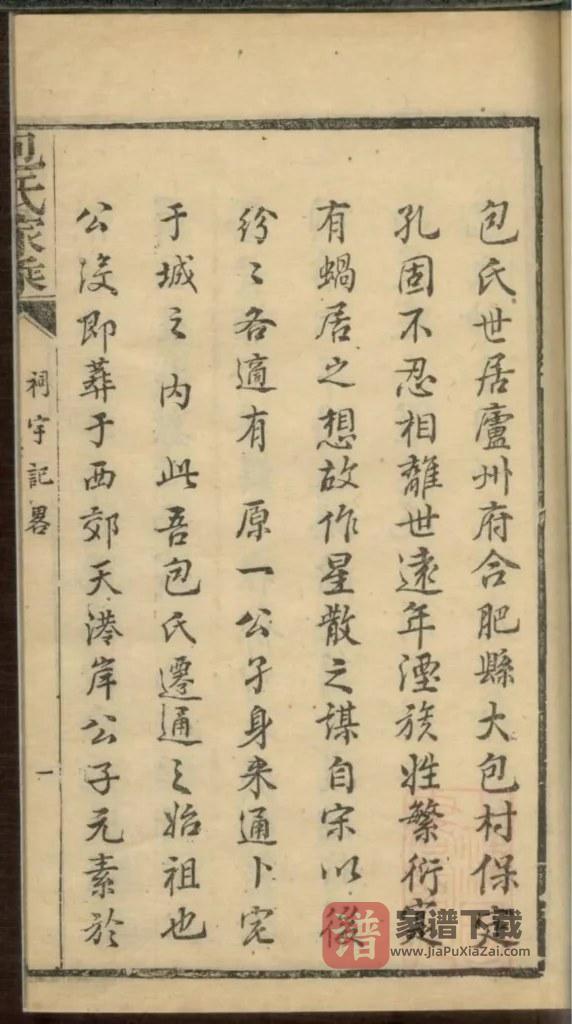 包氏世居廬州府合肥縣大包村保定
孔固不忍相離世遠年湮族姓繁衍寔
有蝸居之想故作星散之謀自宋以後
紛〻各適有 原一公孑身來通卜宅
于城之內 此吾包氏遷通之始祖也
公没即葬于西郊天港岸公子元素於
包氏家乘
祠宇記畧
一
譜
家谱下载
www.JiaPuXiaZai.com